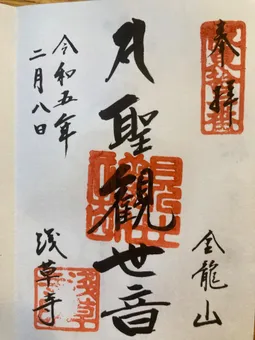 奉拝
金龍山
聖観世音
令和五年
二月八日
浅草寺